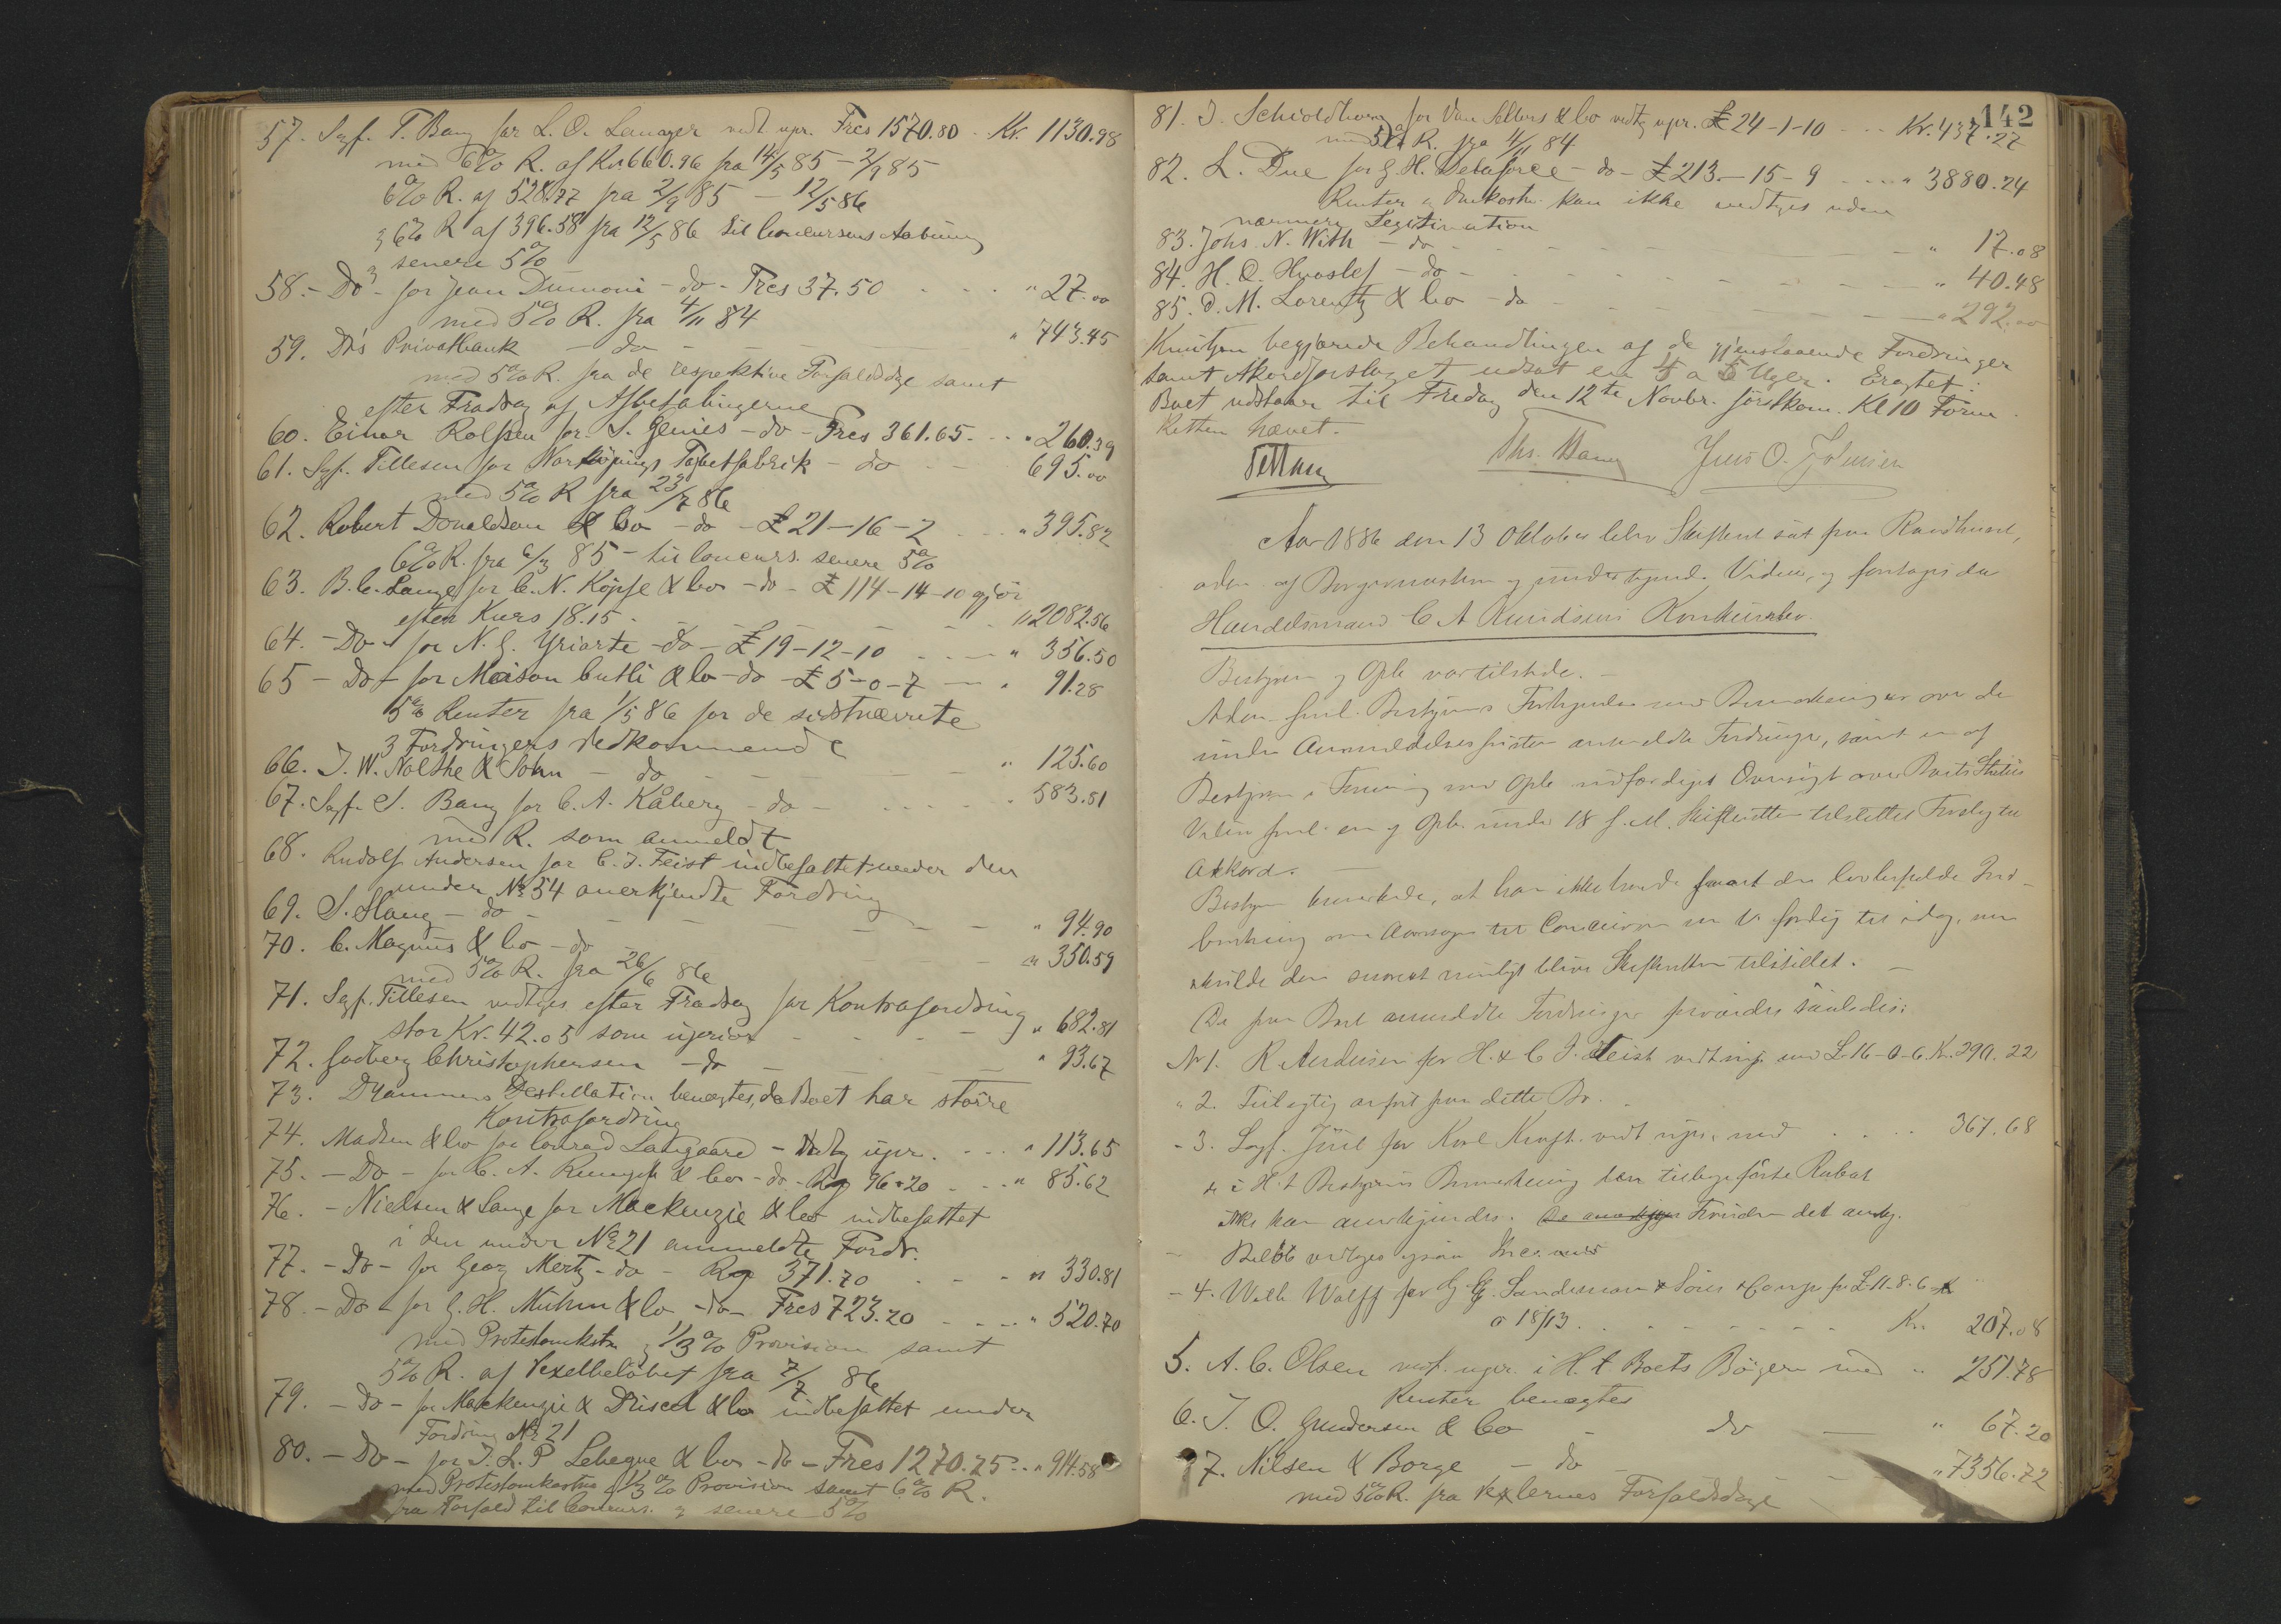 57. Sagf. T. Bang for L. O. Lanager vedt. upr. Frcs 1570.80 - Kr. 1130.98
med 6% R. af Kr. 660.96 fra 14/5 85 - 2/9 85
6% R. af 528.77 fra 2/9 85 - 12/5 86
& 6% R af 396.58 fra 12/5 86 til Concursens Aabning
& senere 5%
58. - Do - for Jean Dumoni - do - Frcs 37.50 " 27.00
med 5% R. fra 4/11 84
59. Drs Privatbank - do - " 743.45
med 5% R. fra de respektive Forfaldsdage samt
efter Fradrag af Afbetalingerne
60. Einar Rolfsen for S. Genies - do - Frcs 361.65. - " 260.39
61. Sagf. Tillesen for Norköpings Tapetfabrik - do - 695.00
med 5% R fra 23/7 86
62. Robert Donaldson & Co - do - £ 21-16-2 " 395.82
6% R. fra 6/3 85 - til Concurs. senere 5%
63. B. C. Lange for C. N. Kopje & Co - do - £ 114-14-10 gjør
efter Kurs 18.15 - " 2082.56
64. - Do - for N. G. Yriarte - do - £ 19-12-10 " 356.50
65 - Do - for Maison Cutli & Co - do £ 5-0-7 " 91.28
5% Renter fra 1/5 86 for de sidstnævnte
3 Fordringers Vedkommende
66. J. W. Nolthe & Sohn - do - " 125.60
67. Sagf. S. Bang for C. A. Kåberg - do - " 583.81
med R. som anmeldt
68. Rudolf Andersen for C. J. Feist indbefattet under den
under No 54 anerkjendte Fordring
69. S. Haug - do - " 94.90
70. C. Magnus & Co - do - " 350.59
med 5% R. fra 26/6 86
71. Sagf. Tillesen vedtges efter Fradrag for Kontrafordring
stor Kr. 42.05 som uprior " 682.81
72. Godberg Christophersen - do " 93.67
73. Drammens Destillation benægtes, da Boet har større
Kontrafordring
74. Madsen & Co for Conrad Langaard - Vedtg upr. " 113.65
75. - Do - for C. A. Rumpf & Co - do - Rg 96.20 - " 85.62
76. - Nielsen & Lange for Mackenzie & Co indbefattet
i den under No 21 anmeldte Fordr.
77. - Do - for Georg Mertz - do - Rg 371.70 " 330.81
78. - Do - for G. H. Muhm & Co - do - Frcs 723.20 " 520.70
med Protestomkstn & 1/3 % Provision samt
5% R. af Vexelbeløbet fra 7/7 86
79. - Do - for Mackenzie & Driscol & Co indbefattet under
Fordring No 21
80. - Do - for J. L. P Lebeque & Co - do - Frcs 1270.25 " 914.58
med Protestomkostn & 1/3 % Provision samt 6% R.
fra Forfald til Concurs. & senere 5%
142
81. J. Scheoldborg for Van Sellers & Co vedtg upr. £ 24-1-10 - Kr. 437.27
med 5% R. fra 4/11 84
82. L. Due for G. H. Delaforce - do - £ 213.-15-9 " 3880.24
Renter & Omkostn. kan ikke vedtges uden
nærmere Legitimation
83. Johs. N. With - do - " 17.08
84. H. O. Hvoslef - do - " 40.48
85. O. M. Lorentz & Co - do " 292.00
Knutzon begjærede Behandlingen af de gjenstaaende Fordringer
samt Akordforslaget udsat en 4 a 5 Uger. Eragtet:
Boet udstaar til Fredag den 12te Novbr. førstkom. Kl 10 Form.
Retten hævet.
Ths. Bang Jens O. Johnsen
Aar 1886 den 13 Oktober blev Skifteret sat paa Raadhuset,
adm. af Borgermesteren og undertegnede Vidne, og foretages da
Handelsmand C A Knudsens Konkursbo.
Bestyren og Gple var tilstede. -
Adm. freml. Bestyrens Fortegnelse med Bemærkninger over de
under Anmeldelsesfristen anmeldte Fordringer, samt en af
Bestyren i Forening med Gple udfærdiget Oversigt over Boets Status
Videre freml. en af Gple under 18 f. M. Skifteretten tilstillet Forslag til
Akkord. -
Bestyren bemærkede, at han ikke havde faaet den lovbefalede Ind-
beretning om Aarsagen til Concursen m. v. færdig til idag, men
skulde den snarest muligt blive Skifteretten tilstillet. -
De paa Boet anmeldte Fordringer forvaredes saaledes:
No 1. R Andersen for H. & C J. Feist vedt. upr. med £ 16-0-6. Kr. 290.22
" 2. Feilagtig anført paa dette Bo.
- 3. Sagf. Juul for Karl Kraft. vedt upr. med 367.68
i H. t Bestyrens Bemærkning den tilbageførte Rabat
ikke kan anerkjendes. Foruden det anm.
Beløb vedtges
- 4. Wilh Wolff for G. G. Sandeman & Sons & Comp. for £ 11-8-6
a 18/13 Kr. 207.08
5. A. C. Olsen vedt. upr. i H. t Boets Bøger med " 251.78
Renter benægtes
6. J. O. Gundersen & Co - do - " 67.20
7. Nilsen & Borge - do - " 7356.72
med 5% R. fra Vexlernes Forfaldsdage